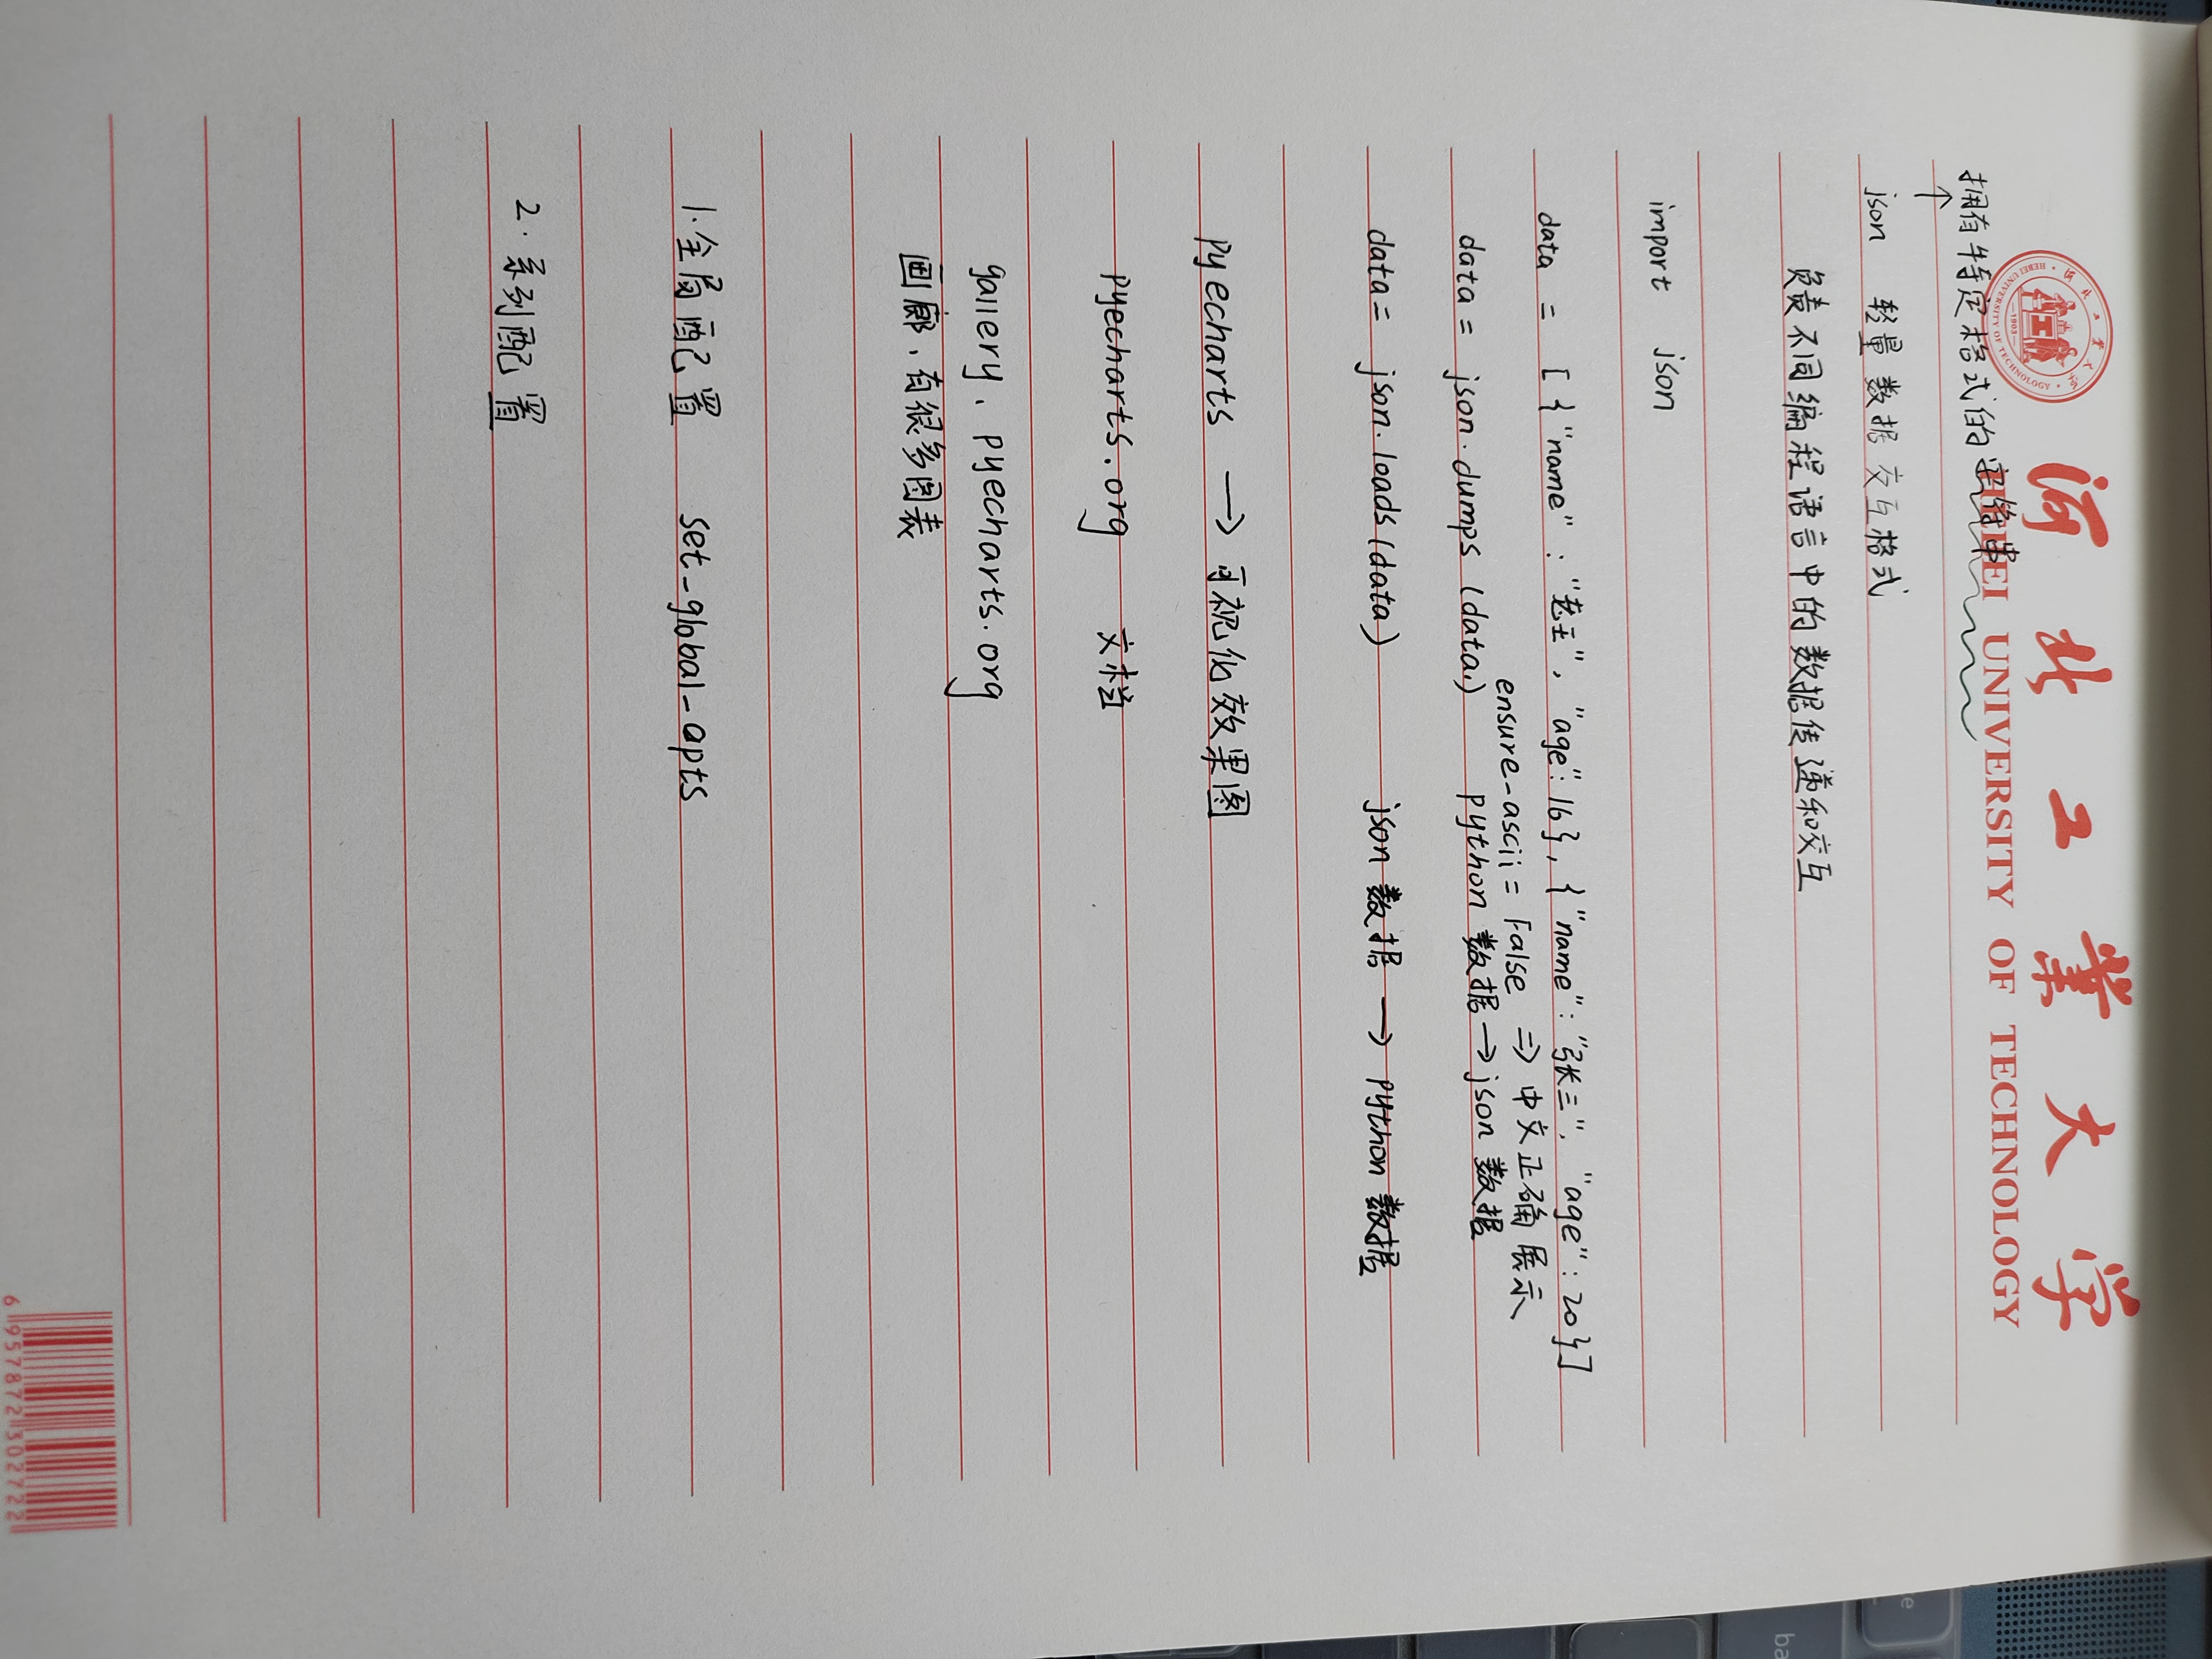 河北工業大学
HEBEI UNIVERSITY OF TECHNOLOGY
河北工業大学
HEBEI UNIVERSITY OF TECHNOLOGY
1903
拥有特定格式的字符串
↑
json 轻量数据交互格式
负责不同编程语言中的数据传递和交互
import json
data = [{"name" : "老王", "age": 16}, {"name": "张三", "age": 20}]
ensure-ascii = False => 中文正确展示
data = json.dumps (data,) python 数据 → json 数据
data = json.loads (data) json 数据 → python 数据
pyecharts → 可视化效果图
pyecharts.org 文档
gallery.pyecharts.org
画廊,有很多图表
1.全局配置 set_global_opts
2.系列配置
6 957872 302722